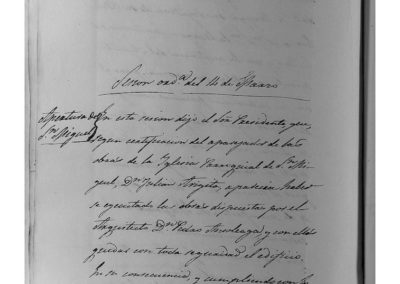 Sesion ordª del 14 de Marzo
Apertura de
Sn Miguel
En esta sesion dijo el Sor Presidente que,
segun certificacion del aparejador de las
obras de la Iglesia Parroquial de Sn Mi-
guel, Dn Julian Angeto, aparecian haber-
se ejecutado las obras dispuestas por el
Arquitecto Dn y con ellas
quedar con toda seguridad el edificio.
En su consecuencia, y cumpliendo con lo